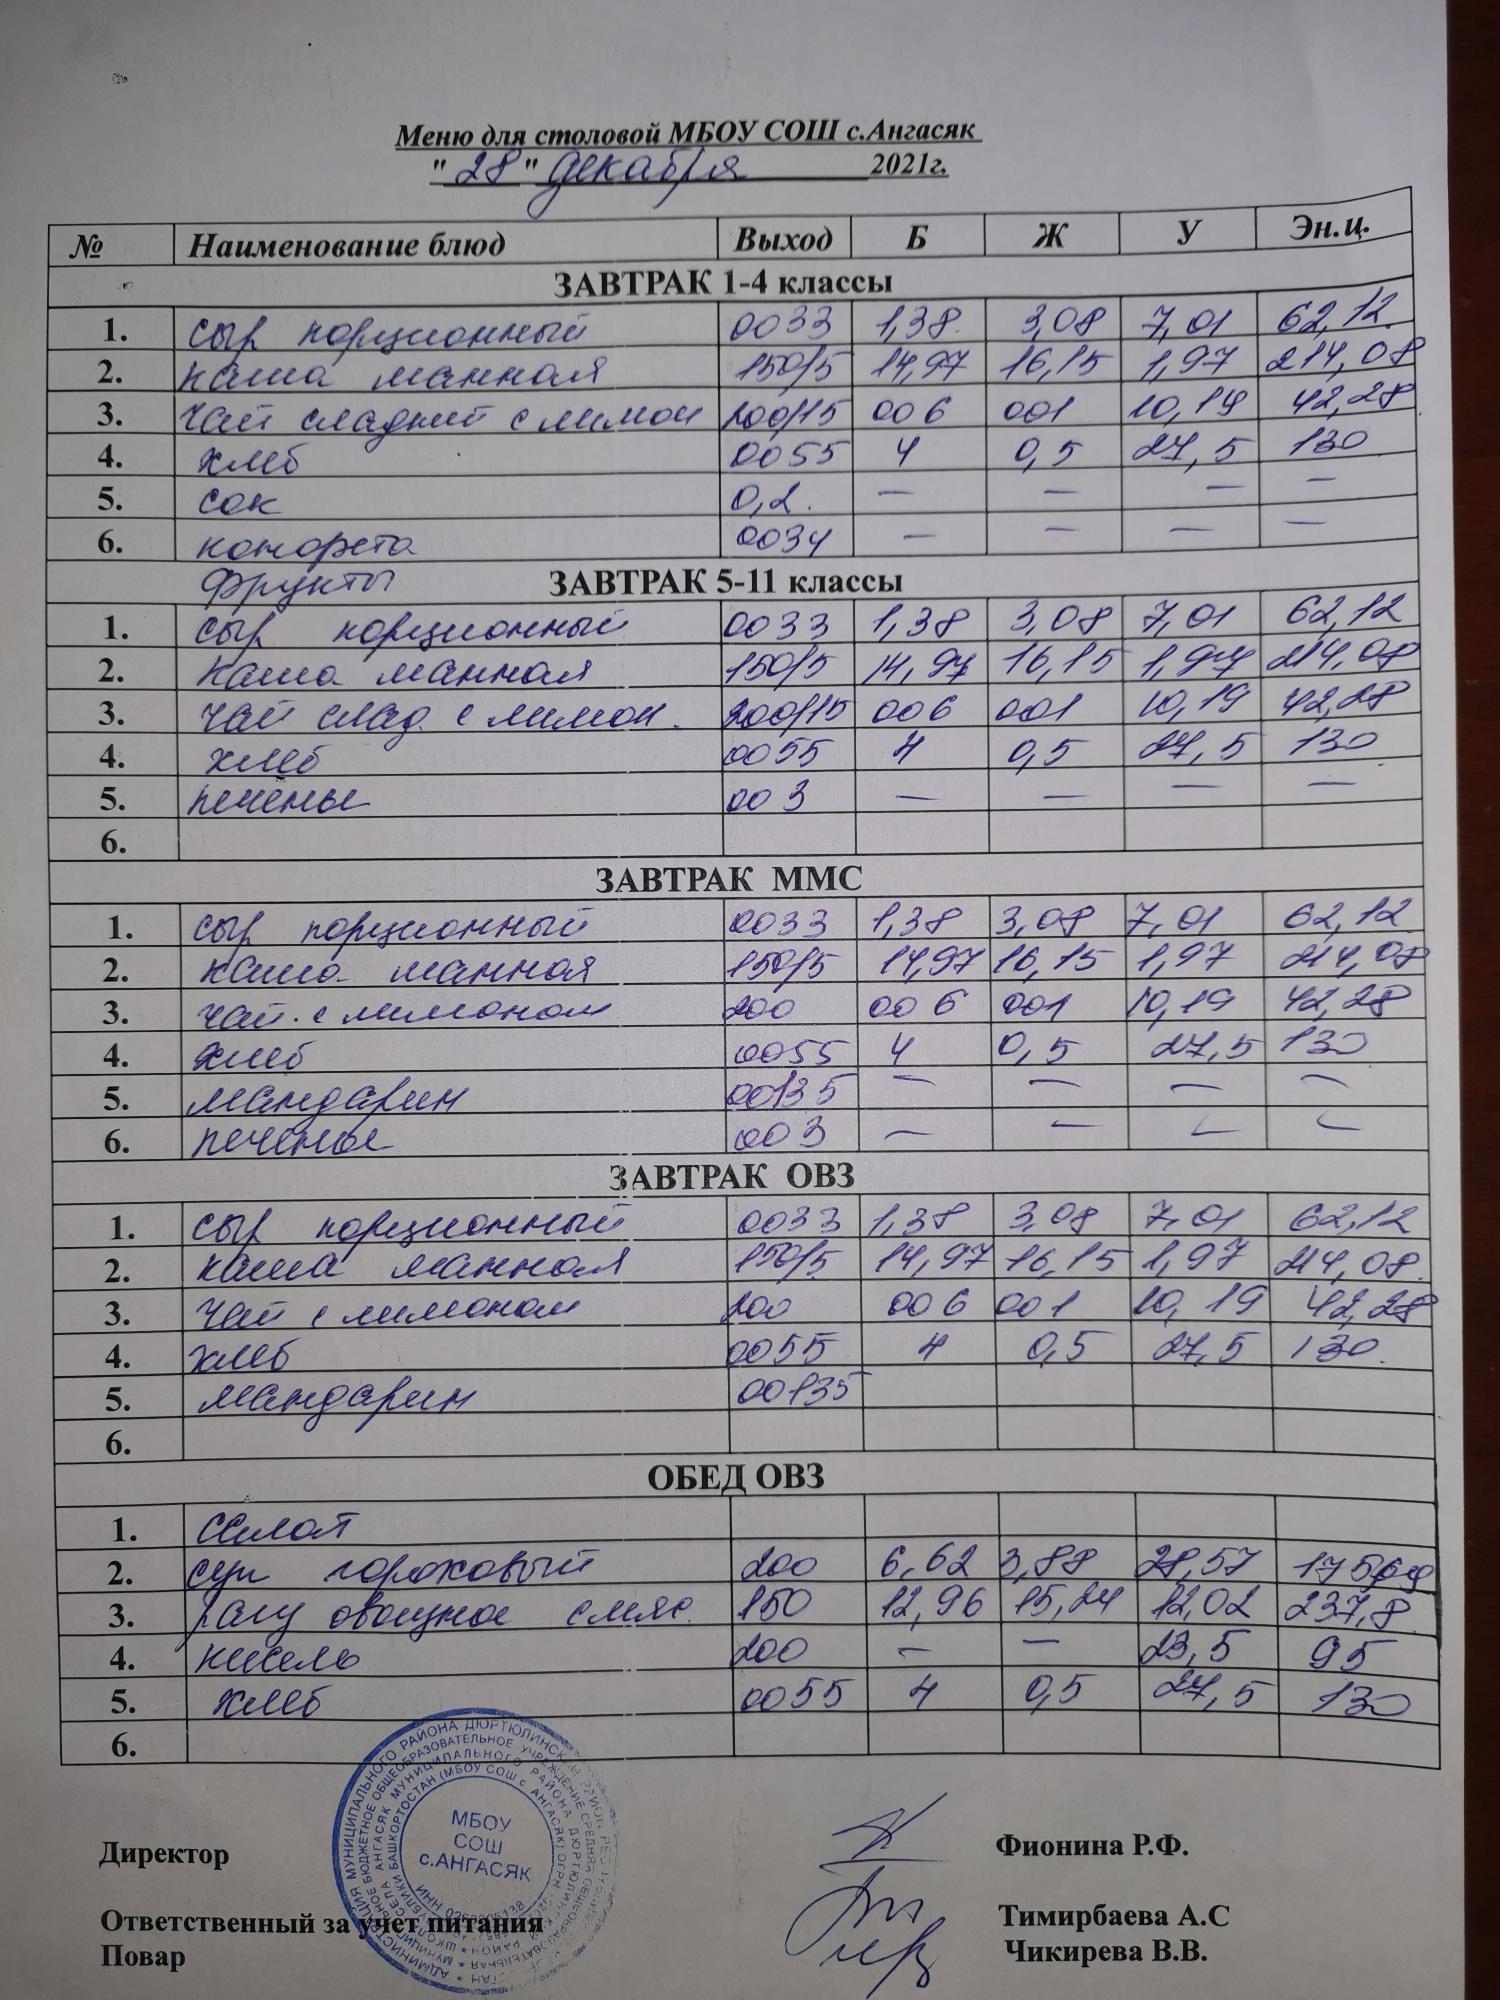 Меню для столовой МБОУ СОШ с.Ангасяк
"28" декабря 2021г.
№ Наименование блюд Выход Б Ж У Эн.ц.
ЗАВТРАК 1-4 классы
1. сыр порционный 0033 1,38 3,08 7,01 62,12
2. каша манная 150/5 14,97 16,15 1,97 214,08
3. чай сладкий с лимон 200/15 006 001 10,19 42,28
4. хлеб 0055 4 0,5 27,5 130
5. сок 0,2 — — — —
6. конфета 0034 — — — —
фрукты ЗАВТРАК 5-11 классы
1. сыр порционный 0033 1,38 3,08 7,01 62,12
2. каша манная 150/5 14,97 16,15 1,97 214,08
3. чай слад. с лимон. 200/15 006 001 10,19 42,28
4. хлеб 0055 4 0,5 27,5 130
5. печенье 003 — — — —
6.
ЗАВТРАК ММС
1. сыр порционный 0033 1,38 3,08 7,01 62,12
2. каша манная 150/5 14,97 16,15 1,97 214,08
3. чай с лимоном 200 006 001 10,19 42,28
4. хлеб 0055 4 0,5 27,5 130
5. мандарин 00135 — — — —
6. печенье 003 — — — —
ЗАВТРАК ОВЗ
1. сыр порционный 0033 1,38 3,08 7,01 62,12
2. каша манная 150/5 14,97 16,15 1,97 214,08
3. чай с лимоном 200 006 001 10,19 42,28
4. хлеб 0055 4 0,5 27,5 130
5. мандарин 00135
6.
ОБЕД ОВЗ
1. салат
2. суп гороховый 200 6,62 3,88 28,57
3. рагу овощное с мяс. 150 12,96 15,24 12,02 237,8
4. кисель 200 — — 23,5 95
5. хлеб 0055 4 0,5 27,5 130
6.
МБОУ
СОШ
с.АНГАСЯК
Директор Фионина Р.Ф.
Ответственный за учет питания Тимирбаева А.С
Повар Чикирева В.В.